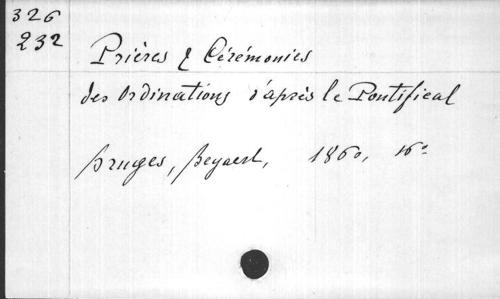 326
232
Prières & Cérémonies
des Ordinations d'après le Pontifical
Bruges, Beyaert, 1860, 16°